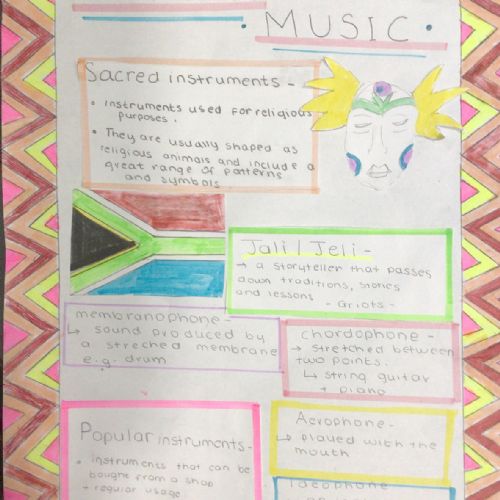 MUSIC
Sacred instruments -
• instruments used for religious
purposes.
• They are usually shaped as
religious animals and include a
great range of patterns
and symbols
Jali / Jeli -
→ a storyteller that passes
down traditions, stories
and lessons
- Griots -
membranophone -
↳ sound produced by
a streched membrane
e.g. drum
chordophone -
→ stretched between
two points.
↳ string guitar
+ piano
Aerophone -
↳ played with the
mouth
Popular instruments -
• instruments that can be
bought from a shop
- regular usage